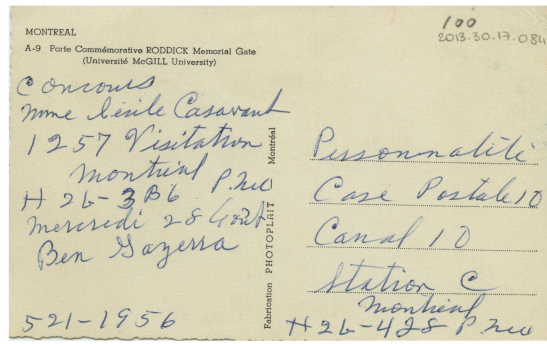 100
2013.30.17.084
MONTREAL
A-9 Porte Commémorative RODDICK Memorial Gate
(Université McGILL University)
Concours
Mme Cécile Casavant
1257 Visitation
Montréal P. Que
H2L-3B6
Mercredi 28 Août
Ben Gazerra
521-1956
Fabrication PHOTOPLAIT Montréal
Personnalité
Case Postale 10
Canal 10
Station C
Montréal
H2L-4Z8 P. Que